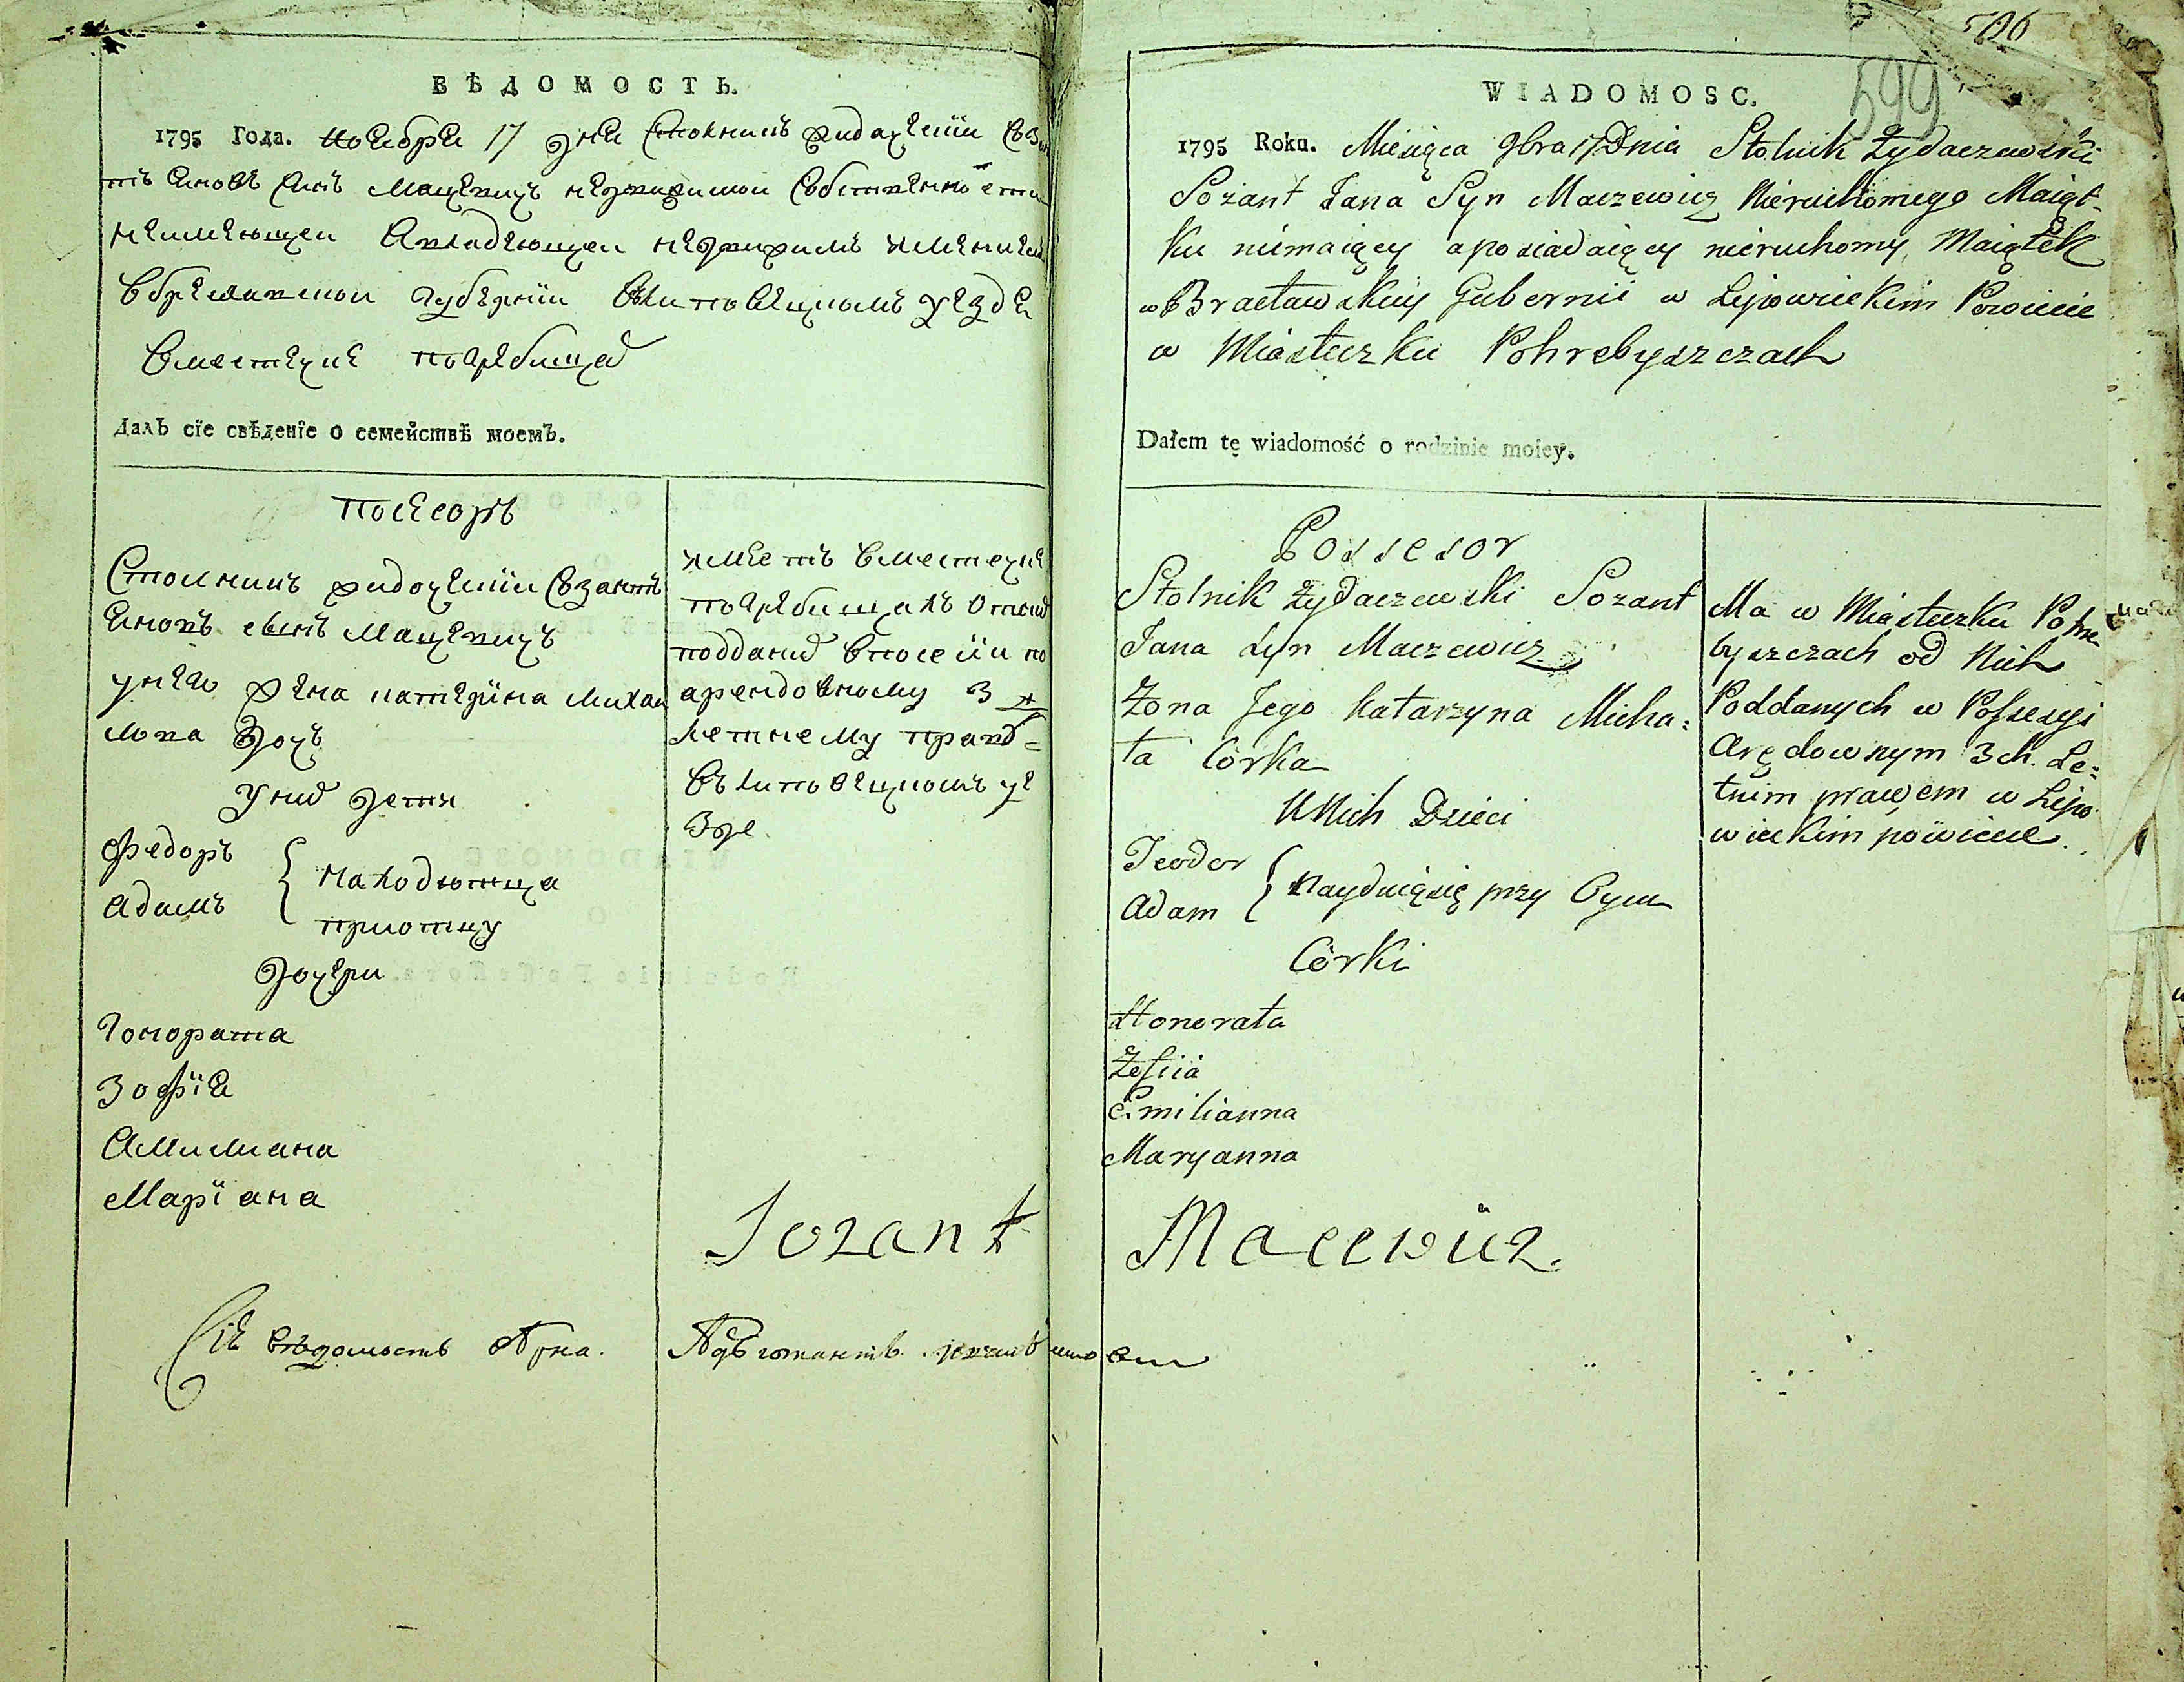 ВѢДОМОСТЬ.
1795 Года. Ноября 17 дня Столникъ Жидачевскій Созан
тъ Яновъ сынъ Мацевичъ недвижимои собственности
неимеющеи авладеющеи недвижимъ имениемъ
вбряславскои губерніи влиповецкомъ уезде
вместечке погребищах
Далъ сїе свѣденїе о семействѣ моемъ.
Посесоръ
Столникъ Жидочевскіи Созантъ
Яновъ сынъ Мацевичъ
унего жена катерина михаи
лова дочь
Уних дети
Федоръ
Адамъ
находятца
приотцу
Дочери
Гонората
Зофія
Амилиана
Маріана
имеетъ вместечке
погребищахъ оных
подданих впосесіи по
арендовному 3 х
летнему праву=
въ липовецкомъ уе
зде
Сіе ведомость
506
599
WIADOMOSC.
1795 Roku. Miesiąca 9bra 17 Dnia Stolnik Żydaczewski
Sozant Jana Syn Maczewicz Nieruchomego Maiąt-
ku niemaiący aposiadaiący nieruchomy Maiątek
w Bracławskiey Gubernii w Lipowieckim Powiecie
w Miasteczku Pohrebyszczach
Dałem tę wiadomość o rodzinie moiey.
Possesor
Stolnik Żydaczewski Sozant
Jana Syn Maczewicz
Żona Jego Katarzyna Micha:
ła Corka
U Nich Dzieci
Teodor
Adam
Nayduiąsię przy Oycu
Córki
Honorata
Zofiia
Emilianna
Maryanna
Ma w Miasteczku Pohre
byszczach od Nich
Poddanych w Possesyi
Arędownym 3ch. Le:
tnim prawem w Lipo
wieckim powiecie.
Sozant Macewicz.